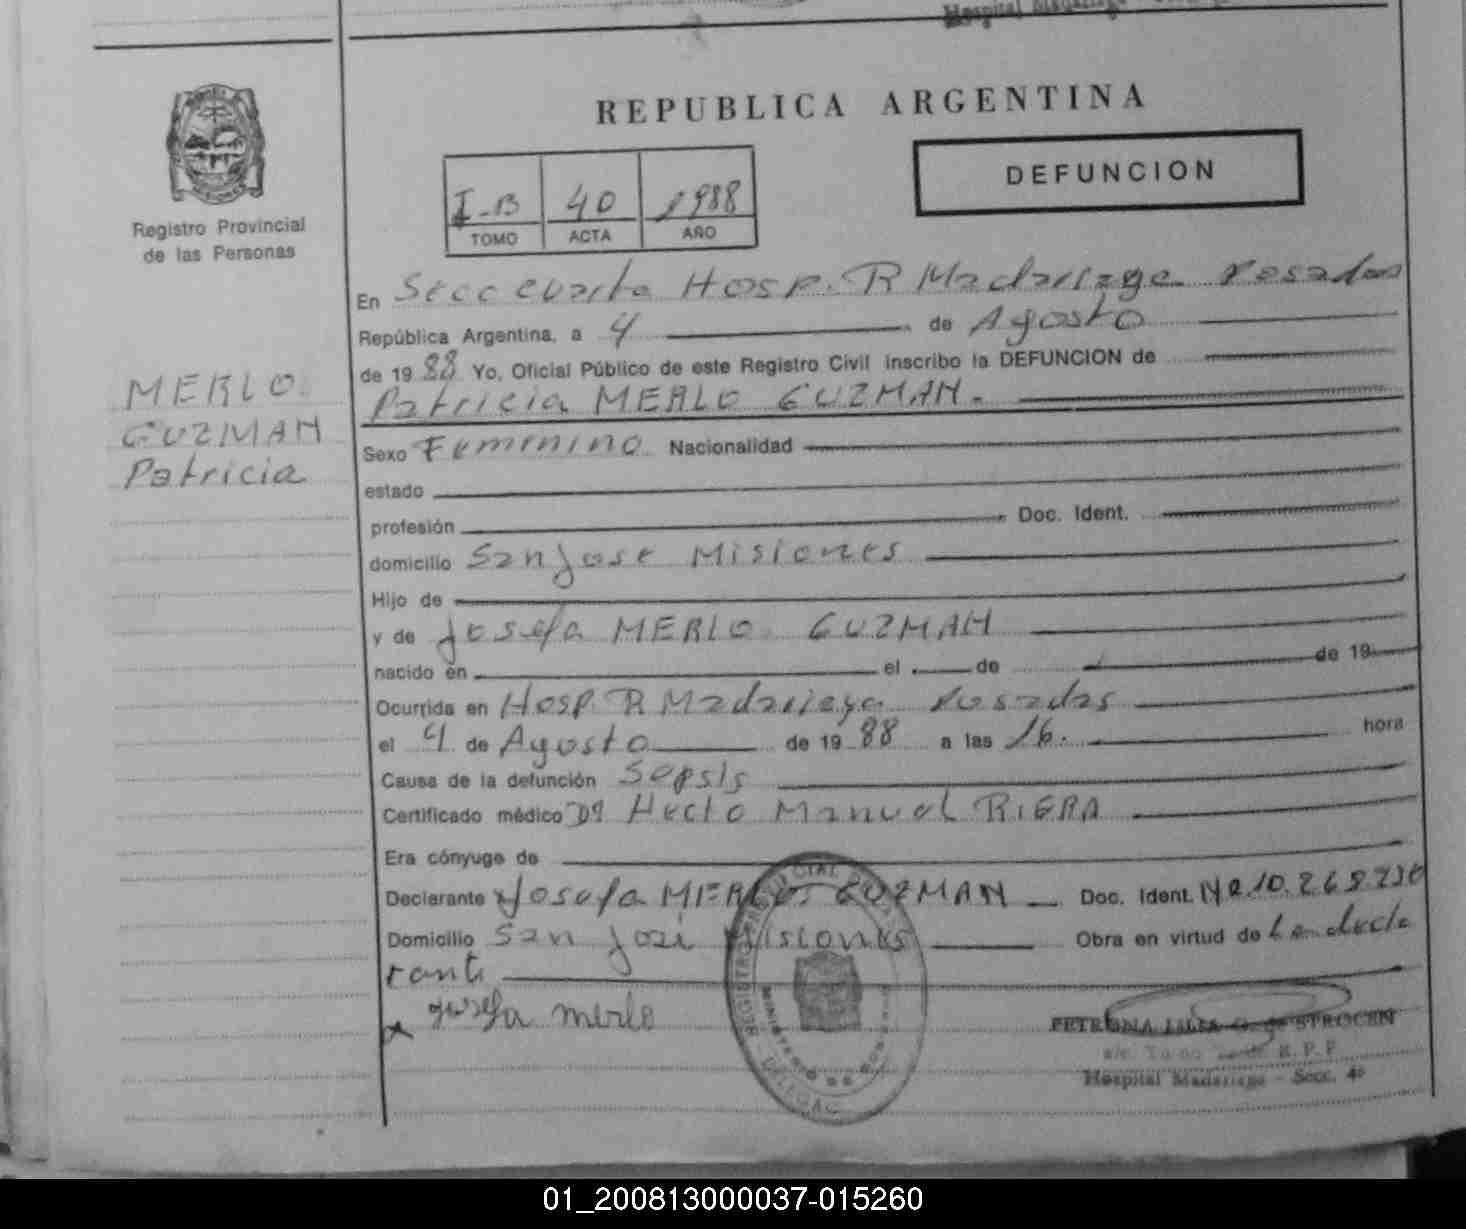 Hospital Madariaga
REPUBLICA ARGENTINA
DEFUNCION
I-B 40 1988
TOMO ACTA AÑO
Registro Provincial
de las Personas
MERLO
GUZMAN
Patricia
En Secc cuarta Hosp. R Madariaga Posadas
República Argentina, a 4 de Agosto
de 1988 Yo, Oficial Público de este Registro Civil inscribo la DEFUNCION de
Patricia MERLO GUZMAN.
Sexo Femenino Nacionalidad
estado
profesión Doc. Ident.
domicilio San Jose Misiones
Hijo de
y de Josefa MERLO GUZMAN
nacido en el de de 19
Ocurrida en Hosp. R Madariaga Posadas
el 4 de Agosto de 1988 a las 16. hora
Causa de la defunción Sepsis
Certificado médico Dr Hecto Manuel RIERA
Era cónyuge de
Declarante Josefa MERLO GUZMAN Doc. Ident. Nº 10.268.236
Domicilio San José Misiones Obra en virtud de la decla
rante
Josefa merlo
Hospital Madariaga - Secc. 4º
01_200813000037-015260